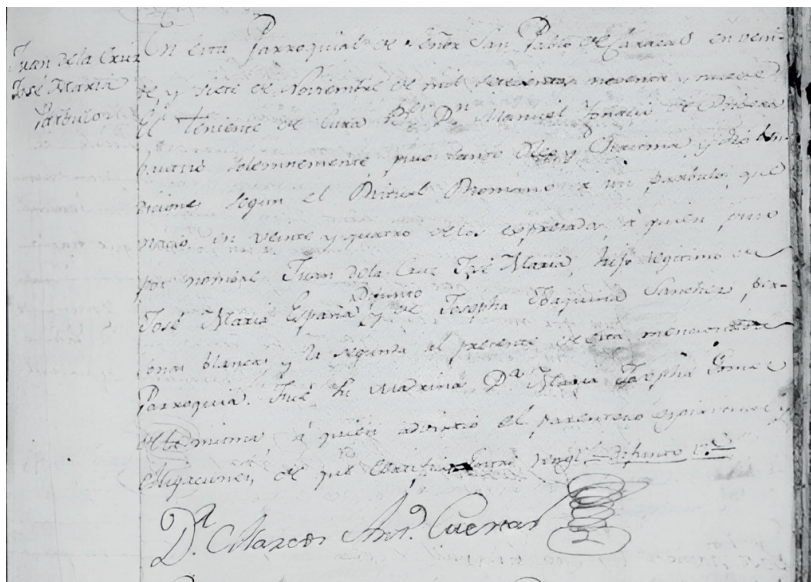 Juan de la Cruz
José María
Párbulo
En esta Parroquial de Señor San Pablo de Caracas en vein-
te y siete de Noviembre de mil setecientos noventa y nueve
el Teniente de Cura Br. Dn. Manuel Ignacio de
Bautizó solemnemente, puso Santo Oleo y Chrisma, y dió ben-
diciones segun el Ritual Romano á un parbulo, que
nació en veinte y quatro de los expresados, á quien puso
por nombre Juan de la Cruz José María, hijo legitimo de
José María España difunto y de Josepha Joaquina Sanchez, per-
sonas blancas y la segunda al presente de esta mencionada
Parroquia. Fué su Maxina Da. Maria Josepha
de la misma á quien advirtió el parentesco espiritual y
obligaciones, de que Certifico difunto
Dr. Marcos Anto. Cuevas